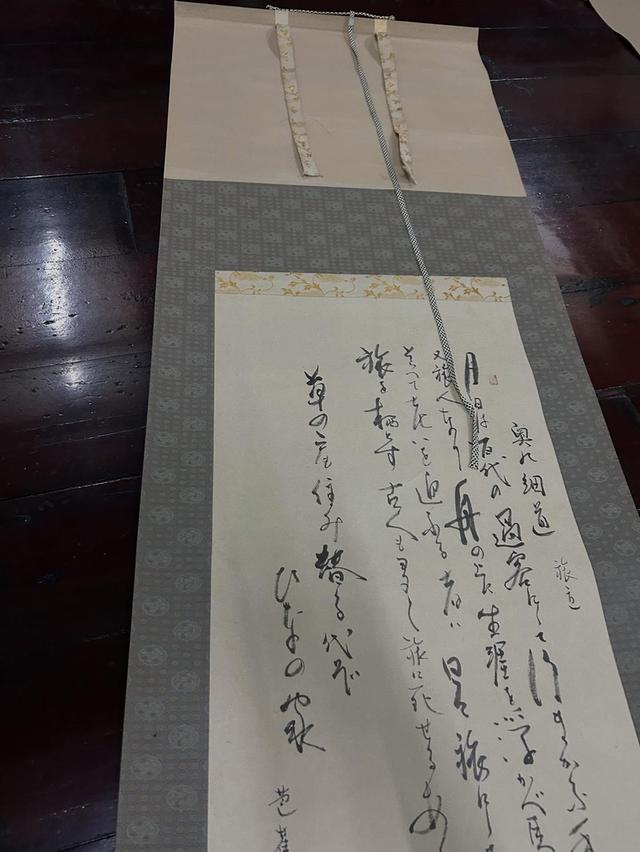 奥の細道
旅立
月日は百代の過客にして行きかふ年
又旅人なり舟の上に生涯を浮かべ馬
らへて老いを迎ふる者は日々旅にし
旅を栖とす古人も多く旅に死せるあ
草の戸も住み替る代ぞ
ひなの家
芭蕉